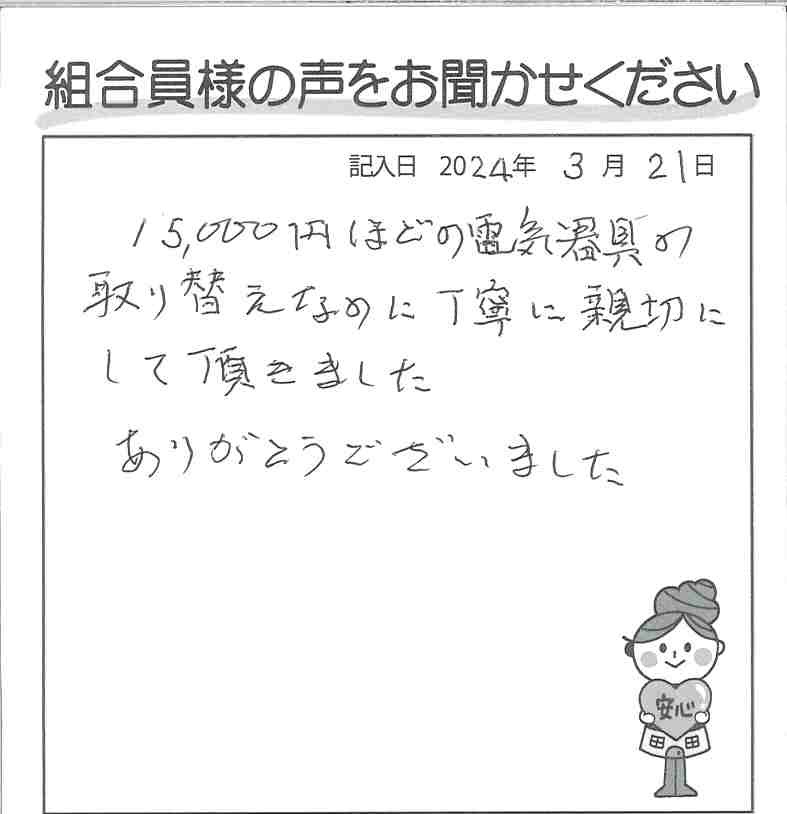 組合員様の声をお聞かせください
記入日 2024年 3月 21日
15,000円ほどの電気器具の
取り替えなのに丁寧に親切に
して頂きました
ありがとうございました
安心